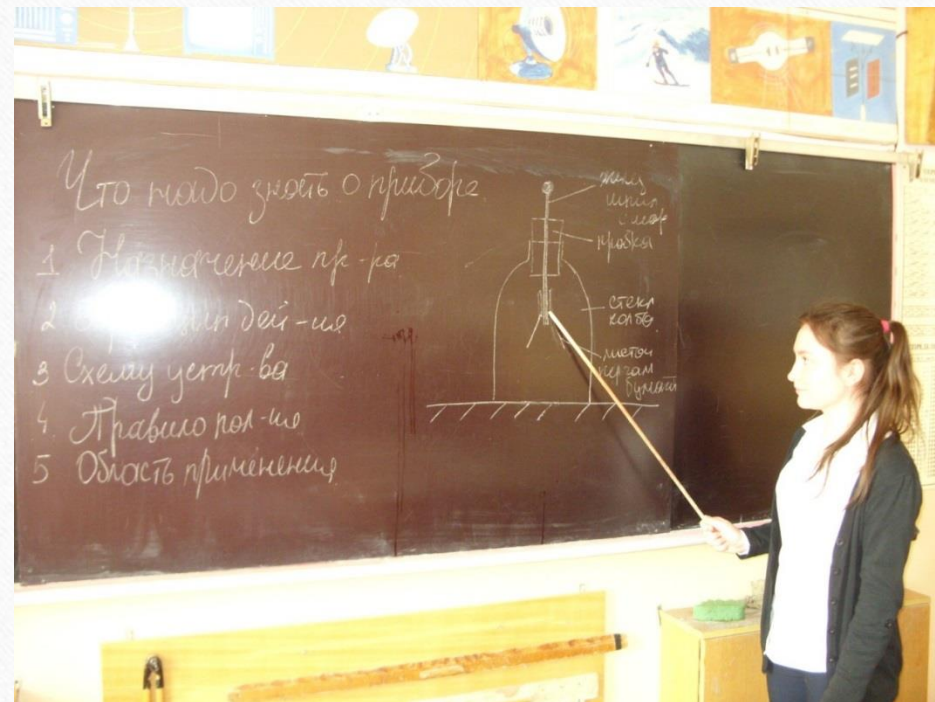 Что надо знать о приборе
1 Назначение пр-ра
2 дей-ия
3 Схему устр-ва
4 Правило пол-ия
5 Область применения
пробка
стекл
колба
листочки
бумаги